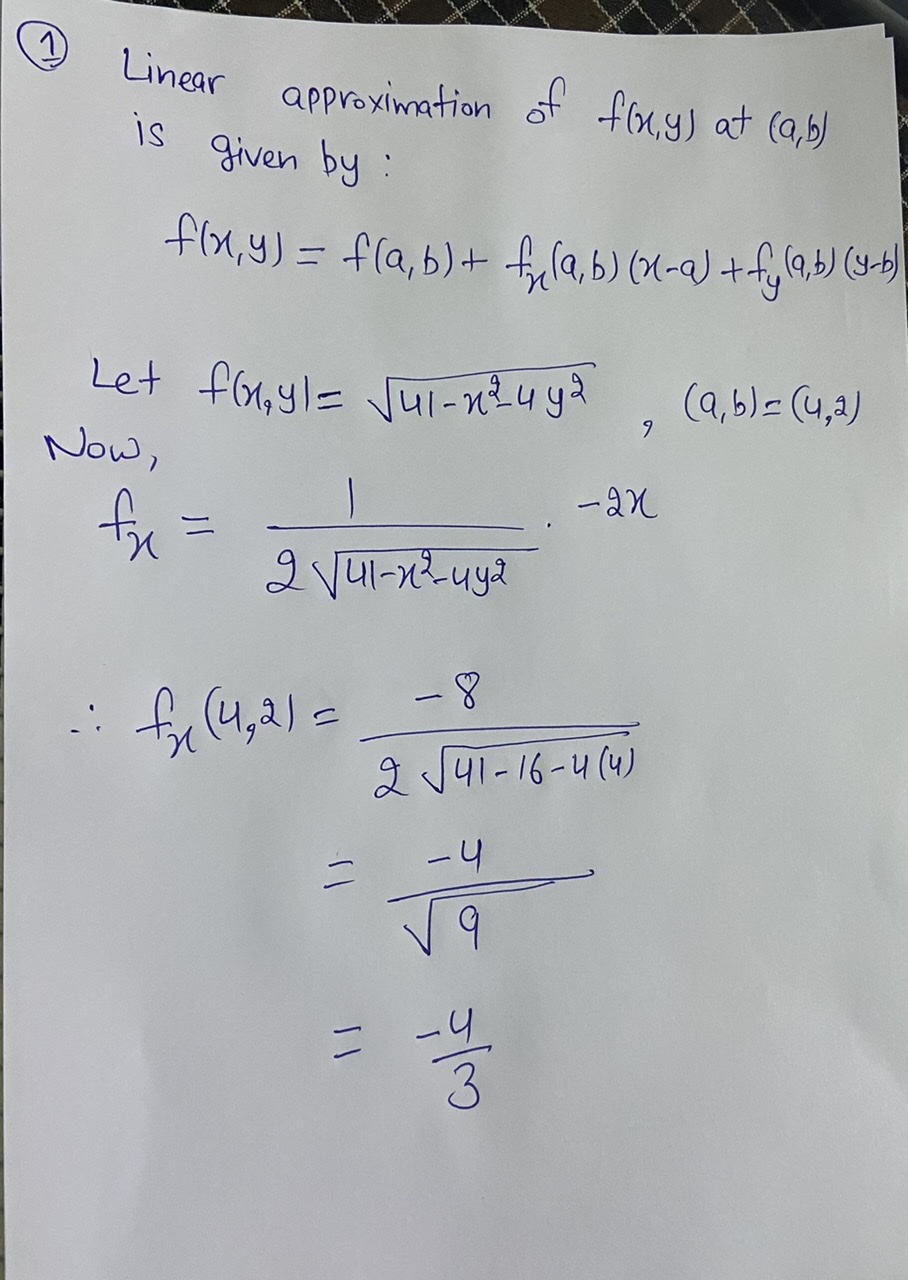 ① Linear approximation of f(x,y) at (a,b)
is given by :
f(x,y) = f(a,b) + fₓ(a,b) (x-a) + f_y(a,b) (y-b)
Let f(x,y) = √(41-x²-4y²) , (a,b) = (4,2)
Now,
fₓ = 1 / (2√(41-x²-4y²)) · -2x
∴ fₓ(4,2) = -8 / (2√(41-16-4(4)))
= -4 / √9
= -4/3